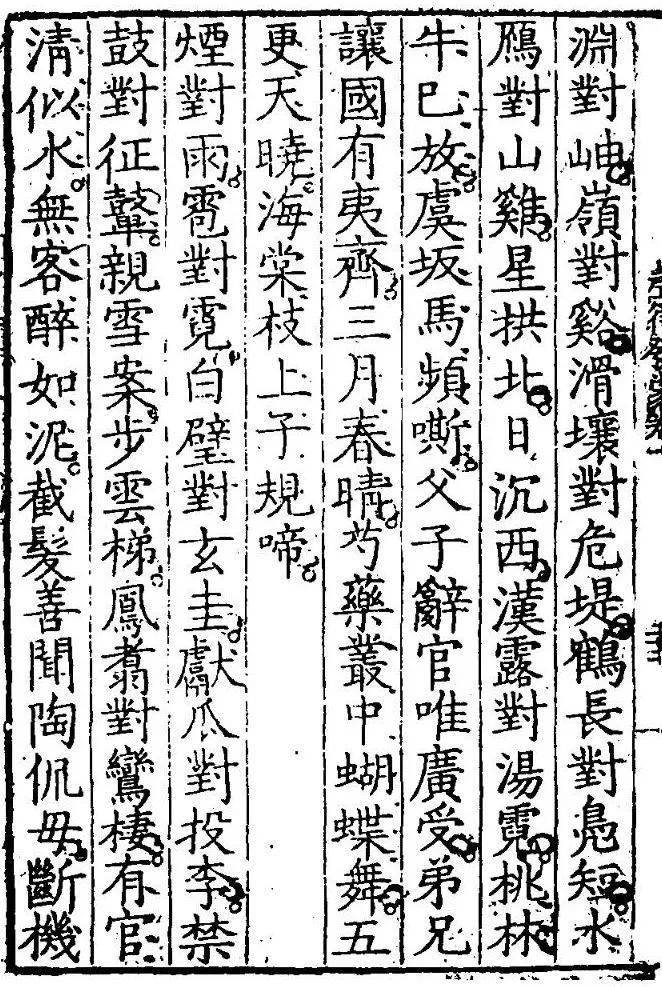 淵對岫嶺對谿滑壤對危堤鶴長對鳧短水
鴈對山雞星拱北日沉西漢露對湯霓桃林
牛巳放虞坂馬頻嘶父子辭官唯廣受弟兄
讓國有夷齊三月春晴芍藥叢中蝴蝶舞五
更天曉海棠枝上子規啼
煙對雨雹對霓白璧對玄圭獻瓜對投李禁
鼓對征鼙親雪案步雲梯鳳翥對鸞棲有官
清似水無客醉如泥截髮善聞陶侃母斷機